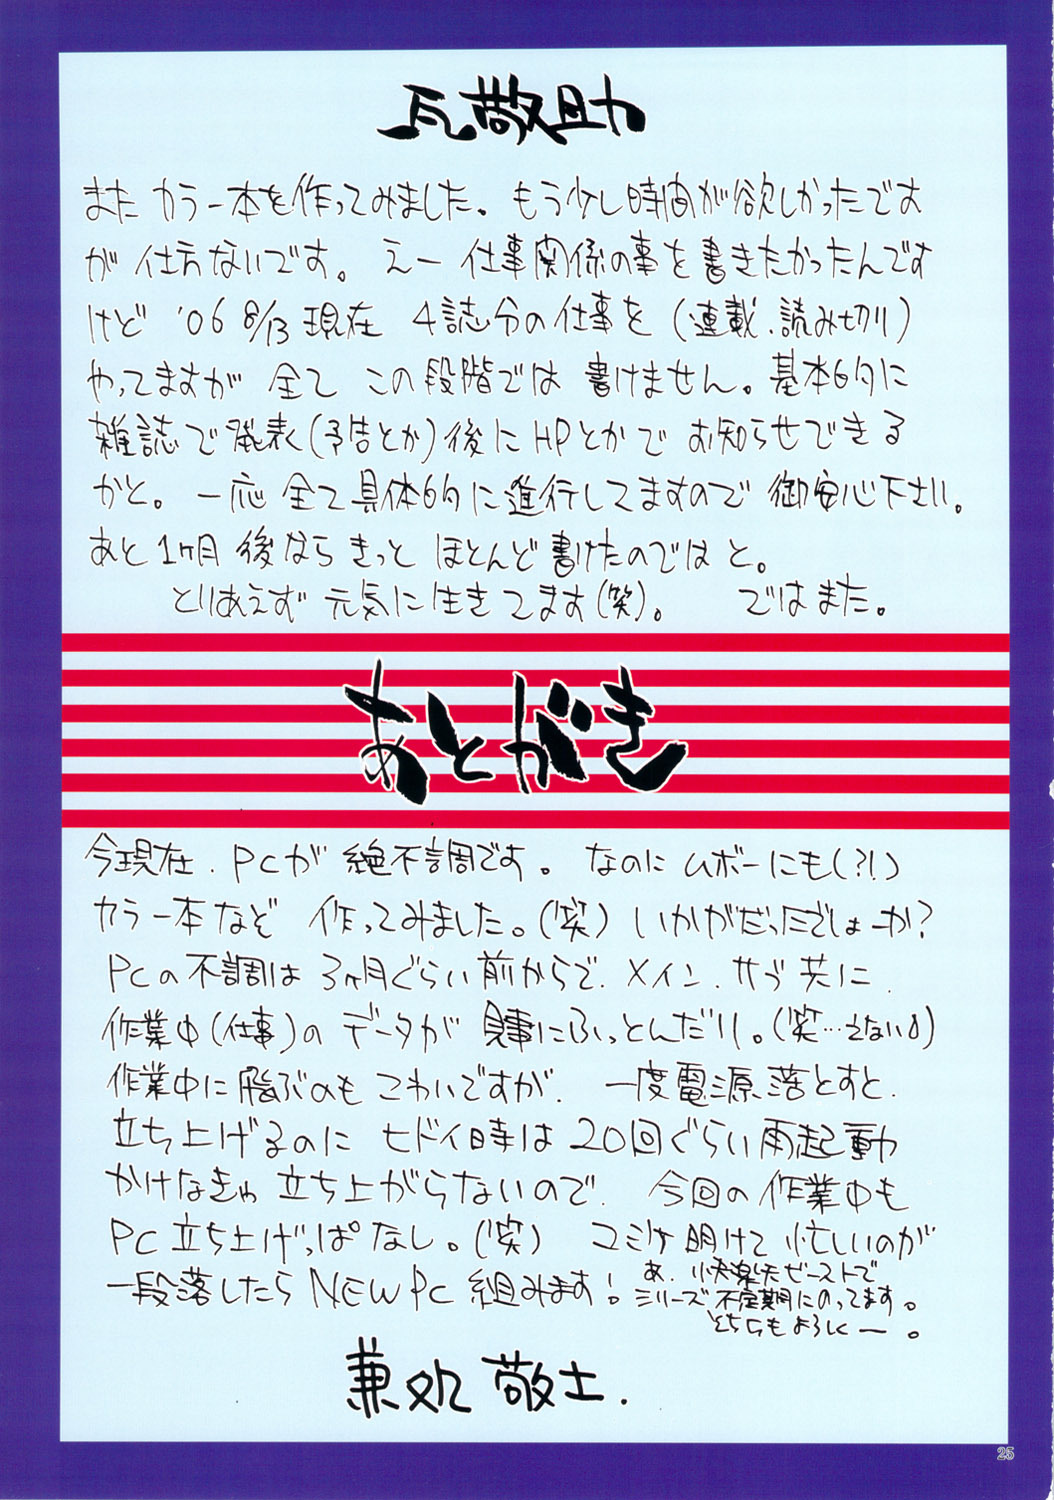 瓦敬助
また カラー本を作ってみました。もう少し時間が欲しかったです
が 仕方ないです。 えー 仕事関係の事を書きたかったんです
けど '06 8/13 現在 4誌分の仕事を (連載、読み切り)
やってますが 全て この段階では 書けません。基本的に
雑誌で発表(予告とか)後にHPとかで お知らせできる
かと。一応 全て具体的に進行してますので 御安心下さい。
あと1ヶ月後なら きっと ほとんど書けたのでは と。
とりあえず 元気に生きてます(笑)。 ではまた。
あとがき
今現在、PCが 絶不調です。 なのに ムボーにも(?!)
カラー本など 作ってみました。(笑) いかがだったでしょーか?
PCの不調は 3ヶ月ぐらい前からで、メイン、サブ共に、
作業中(仕事)の データが 見事にふっとんだり。(笑…えない)
作業中に飛ぶのも こわいですが、 一度電源落とすと、
立ち上げるのに ヒドイ時は 20回ぐらい再起動
かけなきゃ 立ち上がらないので、 今回の作業中も
PC立ち上げっぱなし。(笑) コミケ明けて 忙しいのが
一段落したら NEW PC 組みます!
あ、快楽天ビーストで
シリーズ不定期にのってます。
どちらもよろしくー。
兼処 敬士.
25